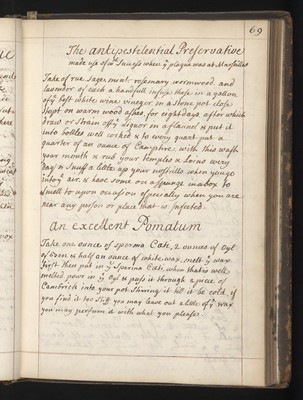 69
The antipestilential Preservative
made use of wth. Success when ye plague was at Marseilles
Take of rue sage mint rosemary wormwood and
lavender of each a handfull infuse these in a gallon
of ye best white wine vineger in a stone pot close
stopt on warm ashes for eight days after which
draw or strain off ye liquor in a flannel & put it
into bottles well corked & to every quart put a
quarter of an ounce of Camphire with this wash
your mouth & rub your temples & loins every
day & snuff a little up your nostrills when you go
into ye air & have some on a spunge in a box to
smell to upon occasion especially when you are
near any person or place that is Infected.
An excellent Pomatum
Take one ounce of sperma Cate, 2 ounces of Oyl
of & half an ounce of white wax, melt ye wax
first then put in ye Sperma Cate, when that is well
melted pour in ye Oyl & pass it through a piece of
Cambrick into your pot stirring it till it be cold, if
you find it too stiff you may leave out a little of ye wax
you may perfume it with what you please.